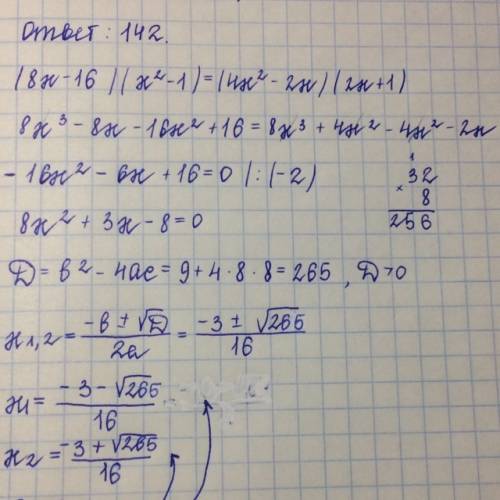 Ответ: 142.
(8x-16)(x²-1)=(4x²-2x)(2x+1)
8x³-8x-16x²+16=8x³+4x²-4x²-2x
-16x²-6x+16=0 |:(-2)
1
32
× 8
256
8x²+3x-8=0
D=b²-4ac=9+4·8·8=265, D>0
x1,2 = (-b±√D)/2a = (-3±√265)/16
x1 = (-3-√265)/16
x2 = (-3+√265)/16